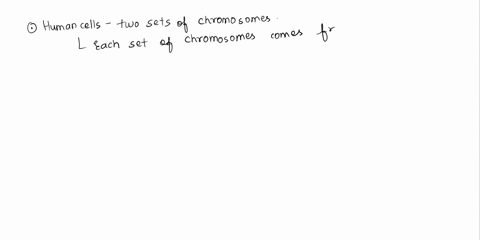 ⊙ Human cells - two sets of chromosomes.
L Each set of chromosomes comes fr